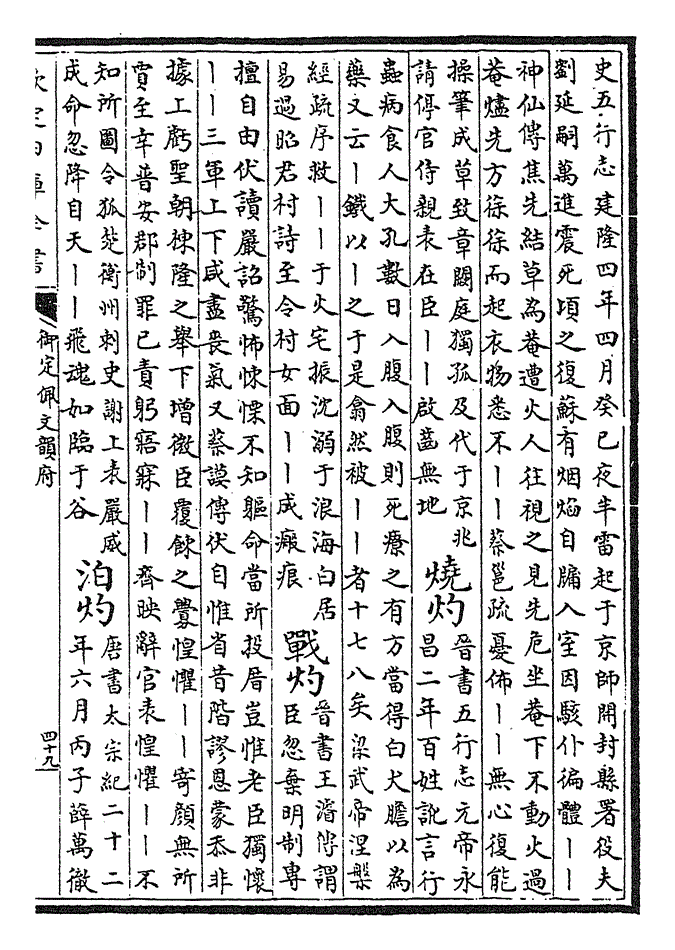 史五行志建隆四年四月癸巳夜半雷起于京師開封縣署役夫
劉延嗣萬進震死頃之復蘇有烟焰自牖入室因駭仆徧體丨丨
神仙傳焦先結草為菴遭火人往視之見先危坐菴下不動火過
菴燼先方徐徐而起衣物悉不丨丨蔡邕疏憂怖丨丨無心復能
操筆成草致章闕庭獨孤及代于京兆
請停官侍親表在臣丨丨啟齒無地
燒灼
晉書五行志元帝永
昌二年百姓訛言行
蟲病食人大孔數日入腹入腹則死療之有方當得白犬膽以為
藥又云丨鐵以丨之于是翕然被丨丨者十七八矣梁武帝涅槃
經疏序救丨丨于火宅振沈溺于浪海白居
易過昭君村詩至今村女面丨丨成瘢痕
戰灼
晉書王濬傳謂
臣忽棄明制專
擅自由伏讀嚴詔驚怖悚慄不知軀命當所投厝豈惟老臣獨懷
丨丨三軍上下咸盡喪氣又蔡謨傳伏自惟省昔階謬恩蒙忝非
據上虧聖朝棟隆之舉下增微臣覆餗之釁惶懼丨丨寄顏無所
賈至幸普安郡制罪已責躬寤寐丨丨齊映辭官表惶懼丨丨不
知所圖令狐楚衡州刺史謝上表嚴威
成命忽降自天丨丨飛魂如臨于谷
泊灼
唐書太宗紀二十二
年六月丙子薛萬徹
欽定四庫全書
御定佩文韻府
四十九